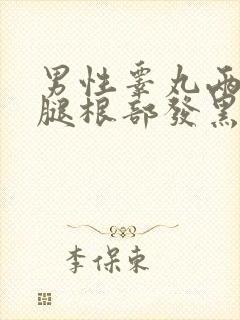 男性睾丸兩
腿根部發黑
李保東